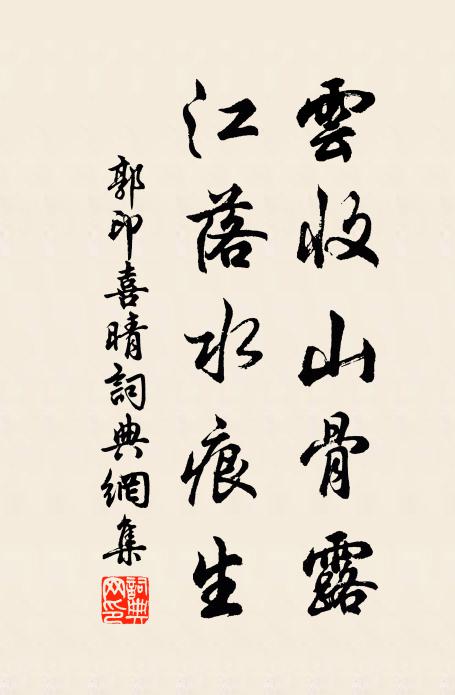 雲收山骨露
江落水痕生
郭印喜晴詞典網集
詞典網印